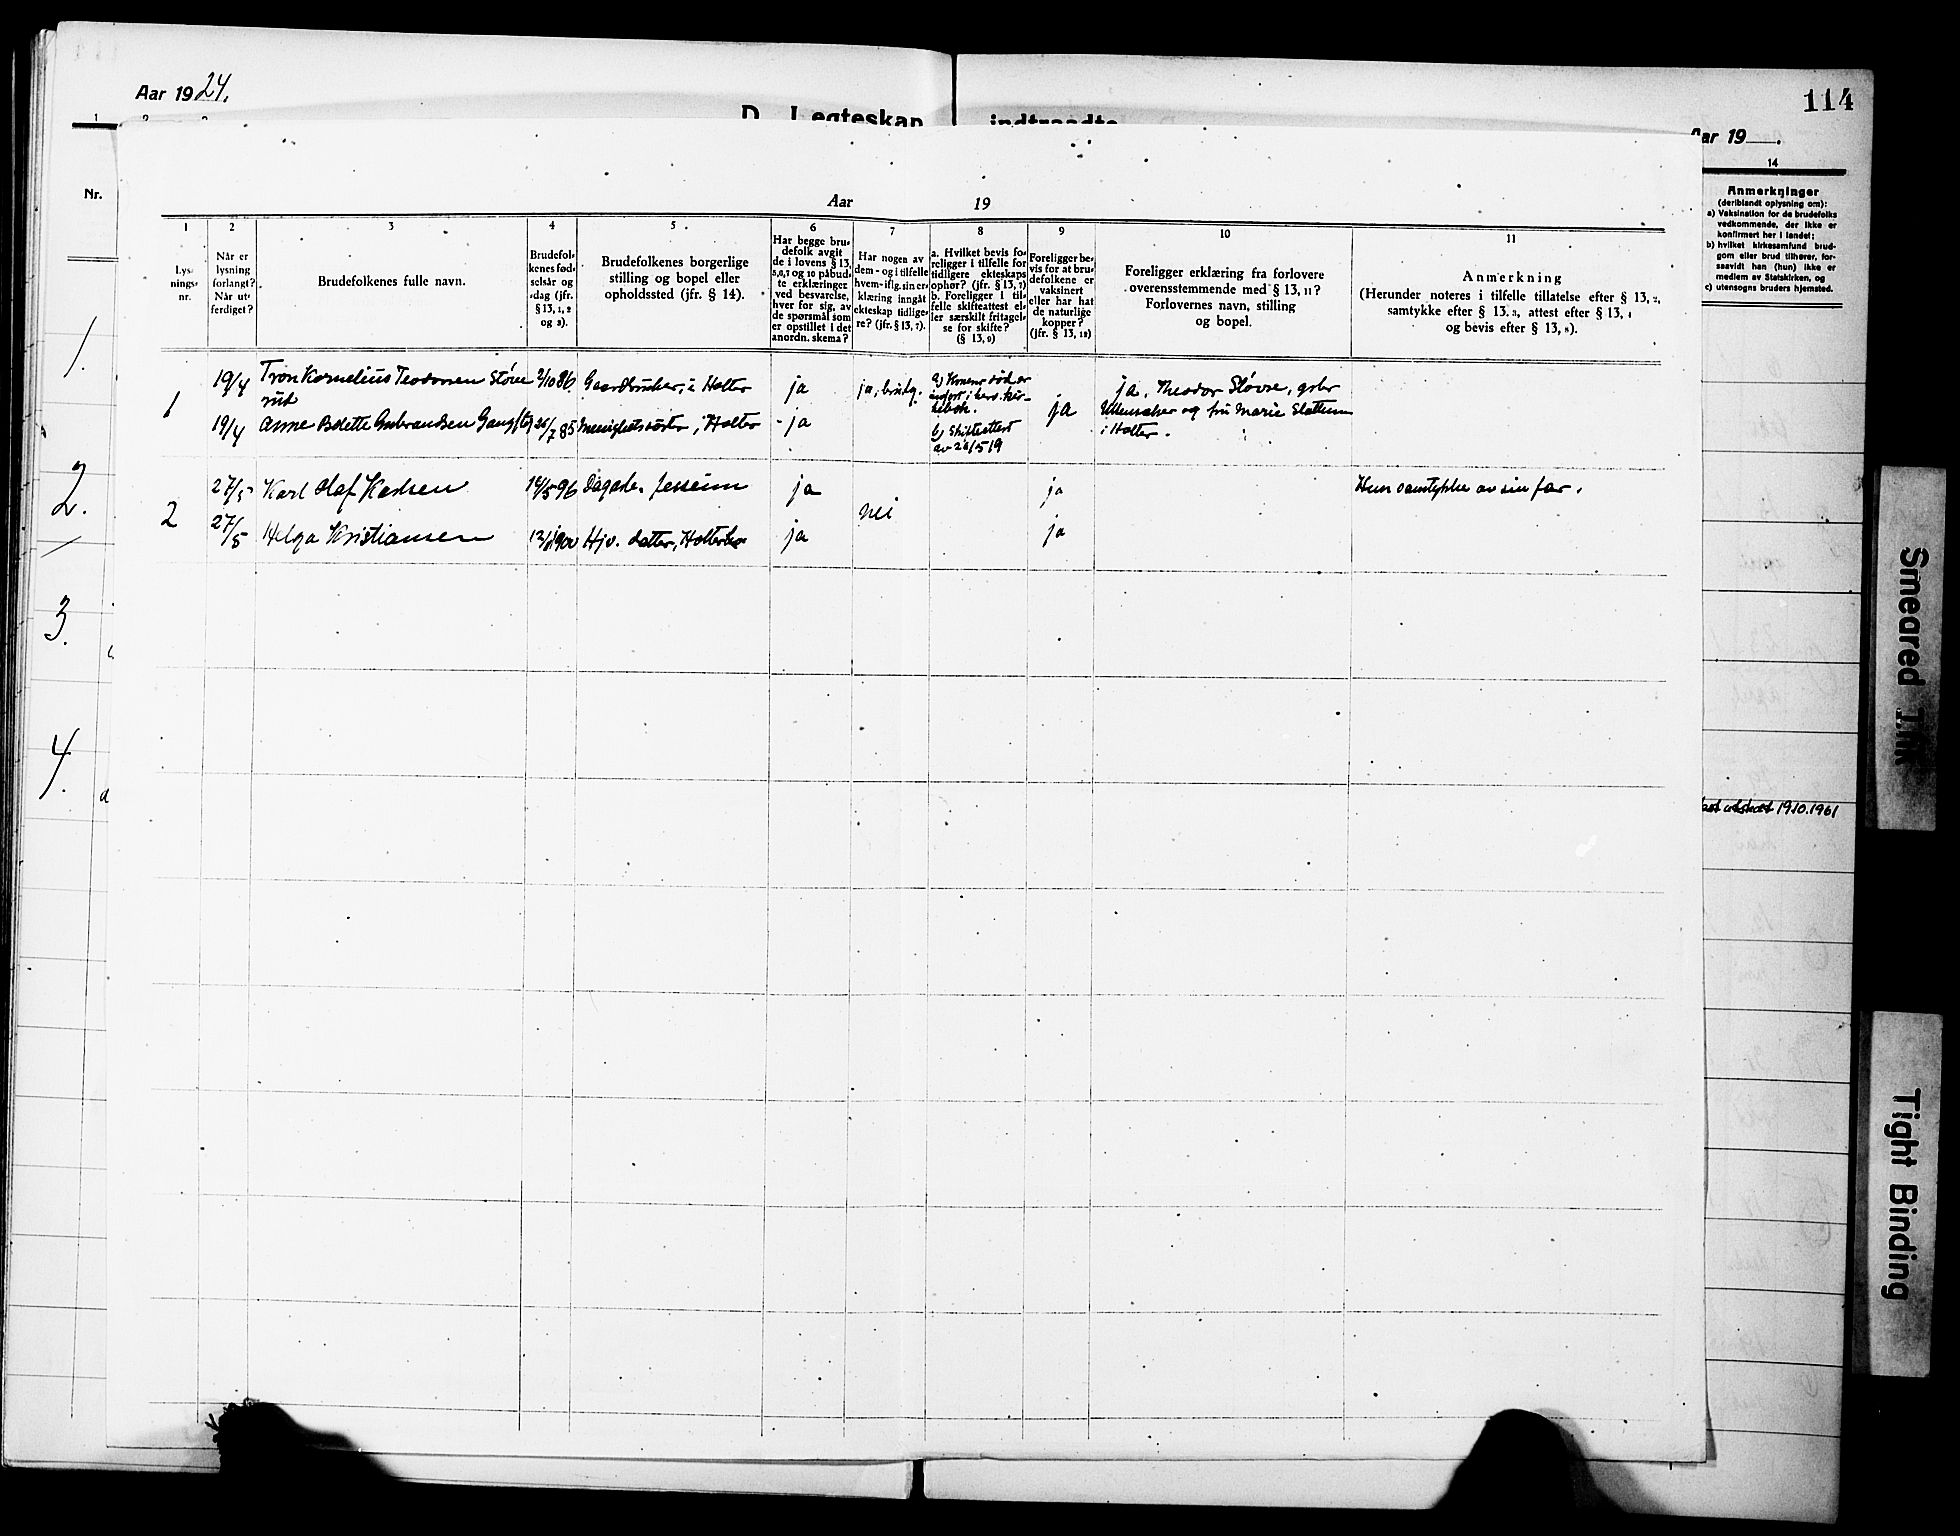 Aar 1924.
114
D. Legteskap indtraadte
Aar 19 .
1
14
Nr.
Anmerkninger
(deriblandt oplysning om):
a) Vaksination for de brudefolks
vedkommende, der ikke er
konfirmert her i landet;
b) hvilket kirkesamfund brud-
gom eller brud tilhører, for-
saavidt han (hun) ikke er
medlem av Statskirken, og
c) utensogns bruders hjemsted.
1.
2.
3.
4.
Aar 19
1
Lys-
nings-
nr.
2
Når er
lysning
forlangt?
Når ut-
ferdiget?
3
Brudefolkenes fulle navn.
4
Brudefol-
kenes fød-
selsår og
-dag (jfr.
§ 13, 1, 2
og 3).
5
Brudefolkenes borgerlige
stilling og bopel eller
opholdssted (jfr. § 14).
6
Har begge bru-
defolk avgit
de i lovens § 13,
5,6,7 og 10 påbud-
te erklæringer
ved besvarelse,
hver for sig, av
de spørsmål som
er opstillet i det
anordn. skema?
7
Har nogen av
dem - og i tilfelle
hvem - iflg. sin er-
klæring inngått
ekteskap tidlige-
re? (jfr. § 13, 7).
8
a. Hvilket bevis fo-
religger i tilfelle for
tidligere ekteskaps
ophør? (jfr. § 13, 7)
b. Foreligger i til-
felle skifteattest el-
ler særskilt fritagel-
se for skifte?
(§ 13, 9)
9
Foreligger be-
vis for at bru-
defolkene er
vaksinert
eller har hat
de naturlige
kopper?
(jfr. § 13, 12)
10
Foreligger erklæring fra forlovere
overensstemmende med § 13, 11?
Forlovernes navn, stilling
og bopel.
11
Anmerkning
(Herunder noteres i tilfelle tillatelse efter § 13, 2,
samtykke efter § 13, 3, attest efter § 13, 4
og bevis efter § 13, 8).
1
19/4 Tron Kornelius Teodorsen Støvse 2/10 86 Gaardbruker, i Holter ja ja, brudg. ja, Theodor Støvse, gbr
rud
19/4 Anne Bolette Gubrandsen 26/7 85 Menighetssøster, i Holter ja ja Ullensaker og fru Marie Slattum
i Holter.
b) Skifteattest
av 28/5 19
2
27/5 Karl Olaf Karlsen 14/5 96 Dagarb. Jessheim ja nei ja Hun samtykke av sin far.
27/5 Helga Kristiansen 1900 Hjv. datter, ja ja
19.10.1961
Smeared Ink
Tight Binding